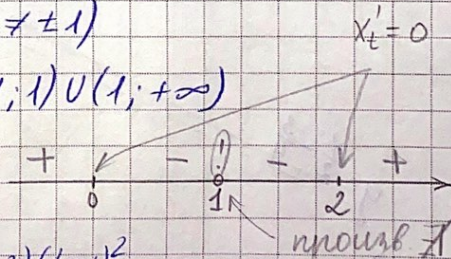 ≠ ±1)
x'ₜ = 0
; 1) ∪ (1; +∞)
+ − (!) − +
0 1 2
произв ∄
)²